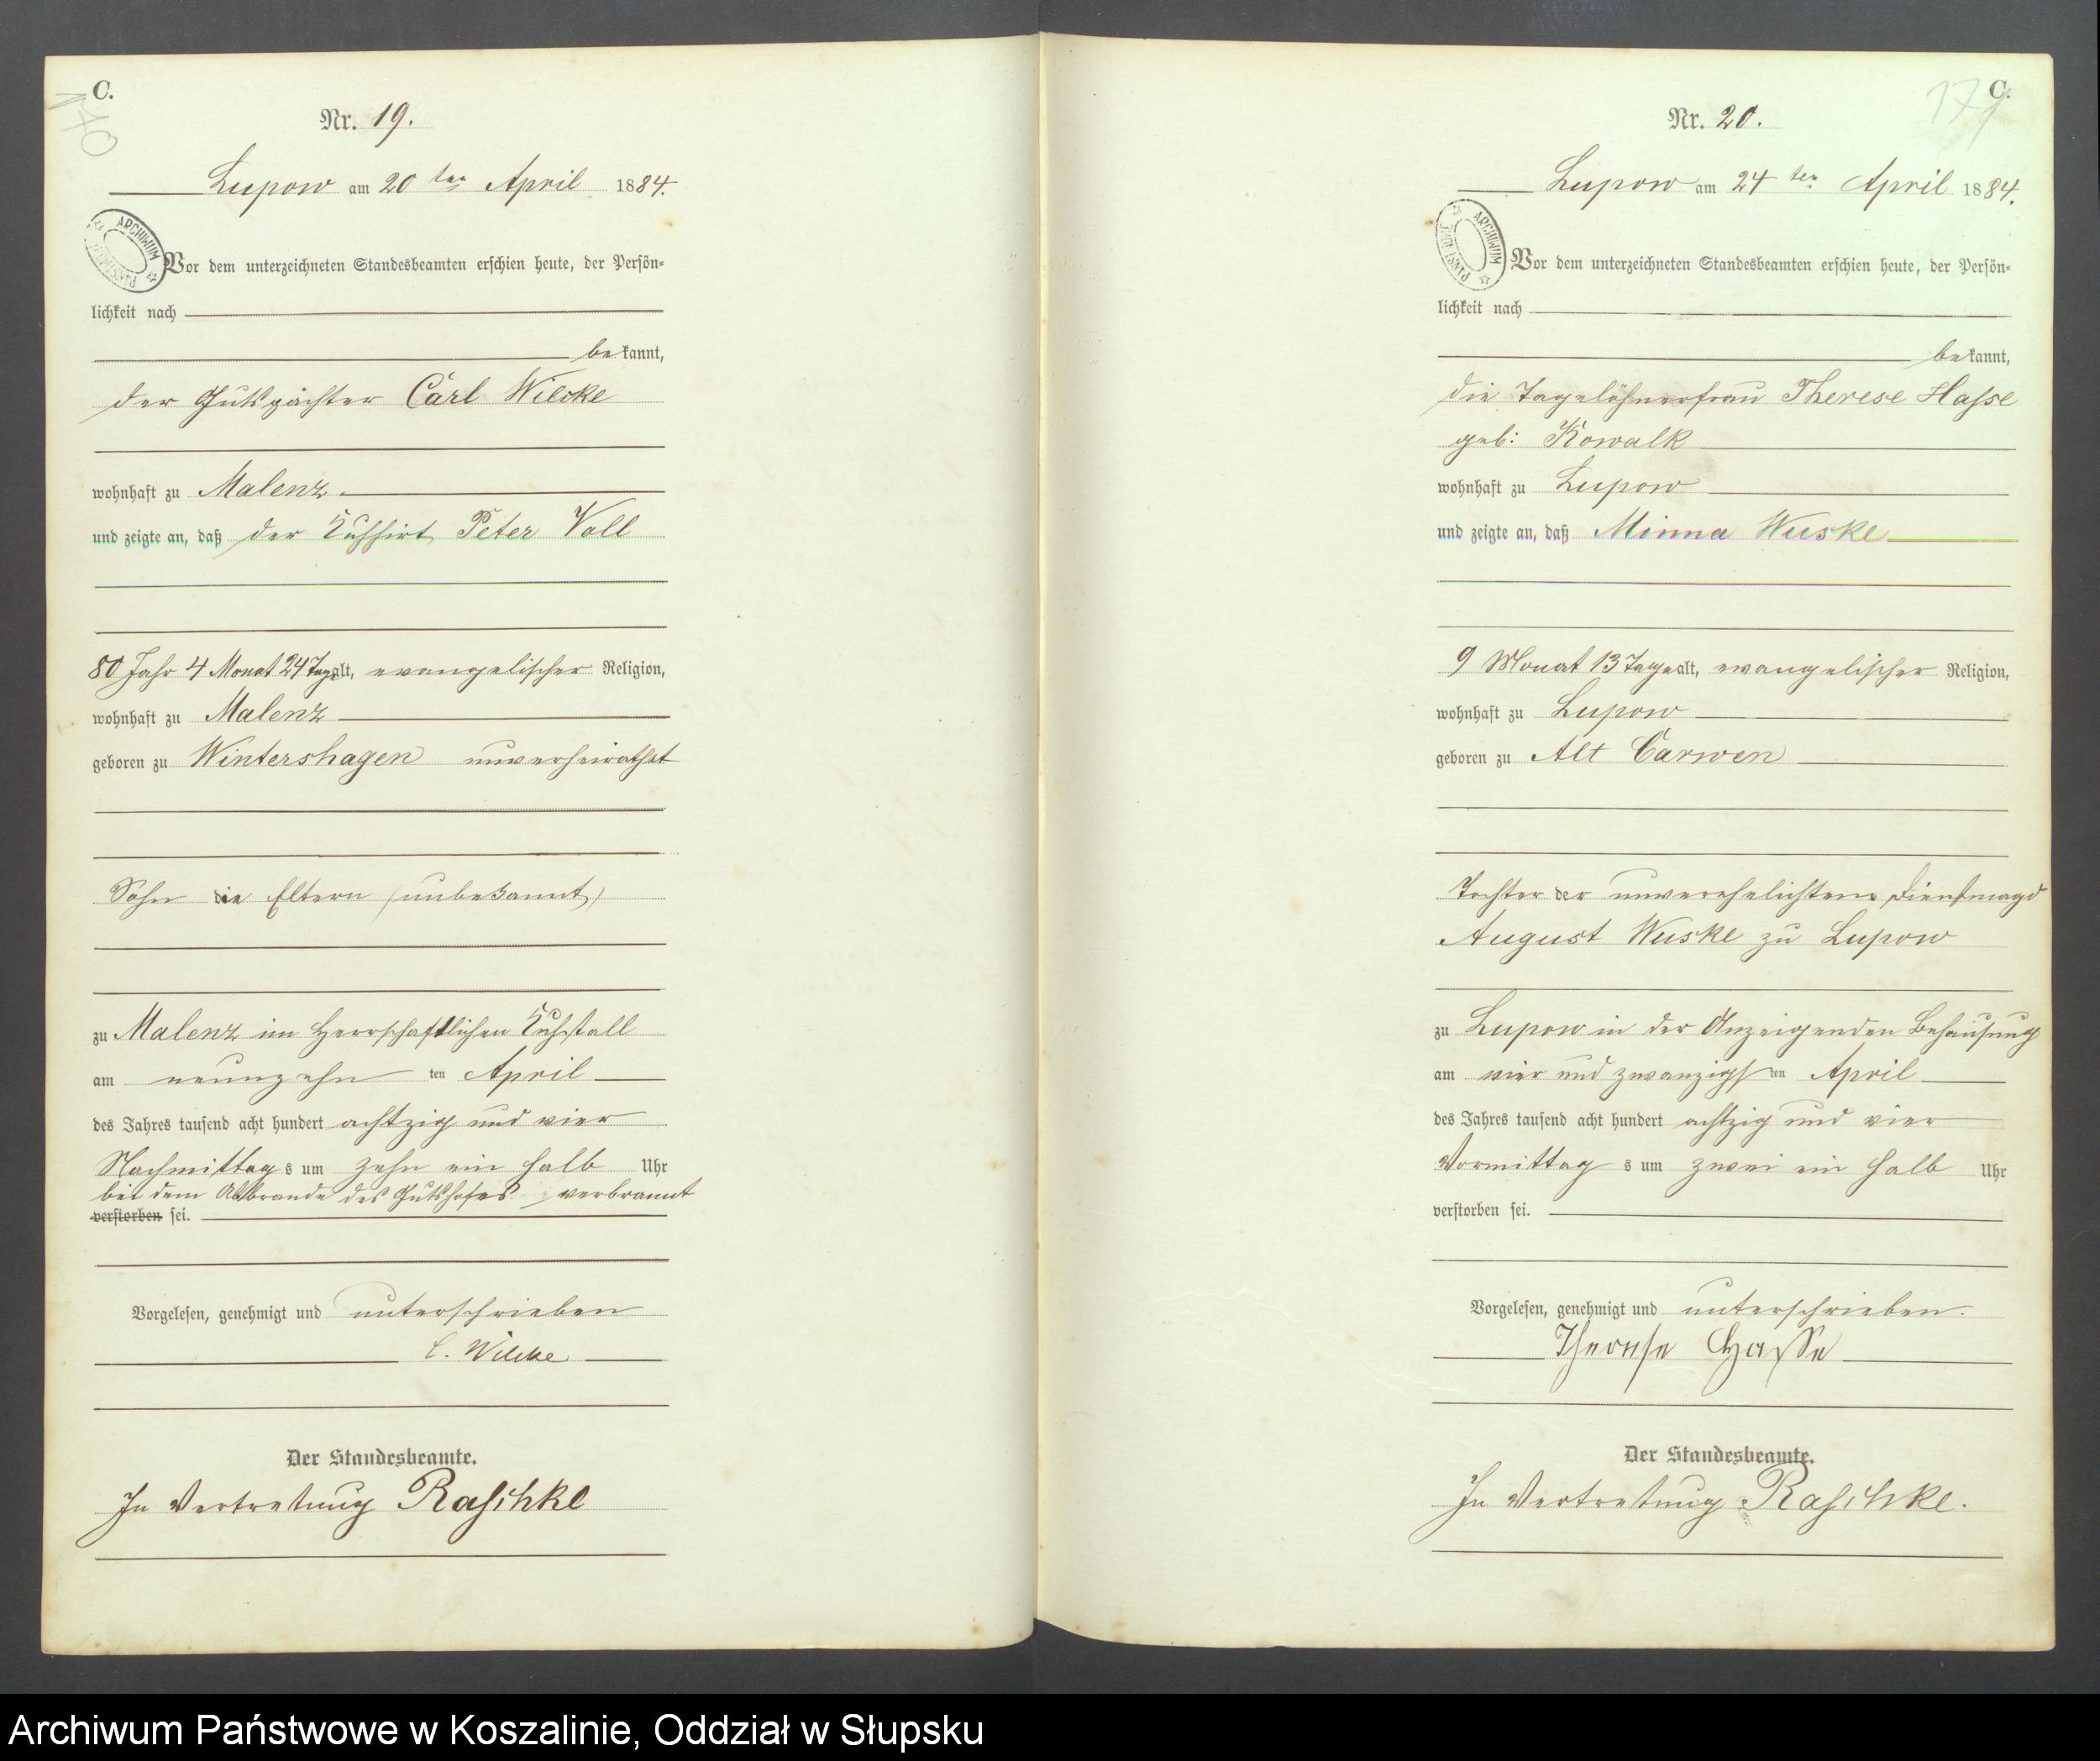 C.
140
Nr. 19.
Lupow am 20 ten April 1884.
ARCHIWUM
Vor dem unterzeichneten Standesbeamten erschien heute, der Persön-
lichkeit nach
bekannt,
der Gutspächter Carl Wilcke
wohnhaft zu Malenz
und zeigte an, daß der Kuhhirt Peter Voll
80 Jahr 4 Monat 24 Tage alt, evangelischer Religion,
wohnhaft zu Malenz
geboren zu Wintershagen unverheirathet
Sohn die Eltern (unbekannt)
zu Malenz im Herrschaftlichen Kuhstall
am neunzehn ten April
des Jahres tausend acht hundert achtzig und vier
Nachmittags um zehn ein halb Uhr
bei dem Abbrande des Gutshofes verbrannt
verstorben sei.
Vorgelesen, genehmigt und unterschrieben
C. Wilcke
Der Standesbeamte.
In Vertretung Raschke
C.
171
Nr. 20.
Lupow am 24 ten April 1884.
ARCHIWUM
Vor dem unterzeichneten Standesbeamten erschien heute, der Persön-
lichkeit nach
bekannt,
die Tagelöhnerfrau Therese Hasse
geb: Kowalk
wohnhaft zu Lupow
und zeigte an, daß Minna Wuske
9 Monat 13 Tage alt, evangelischer Religion,
wohnhaft zu Lupow
geboren zu Alt Carwen
Tochter der unverehelichten Dienstmagd
August Wuske zu Lupow
zu Lupow in der Anzeigenden Behausung
am vier und zwanzigsten April
des Jahres tausend acht hundert achtzig und vier
Vormittags um zwei ein halb Uhr
verstorben sei.
Vorgelesen, genehmigt und unterschrieben.
Therese Hasse
Der Standesbeamte.
In Vertretung Raschke.
Archiwum Państwowe w Koszalinie, Oddział w Słupsku